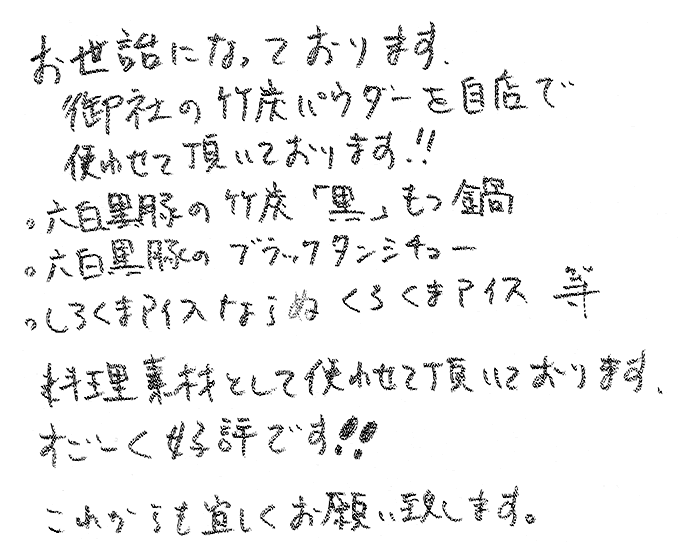 お世話になっております.
御社の竹炭パウダーを自店で
使わせて頂いております!!
。六白黒豚の竹炭「黒」もつ鍋
。六白黒豚のブラックタンシチュー
。しろくまアイスならぬくろくまアイス 等
料理素材として使わせて頂いております.
すご〜く好評です!!
これからも宜しくお願い致します。